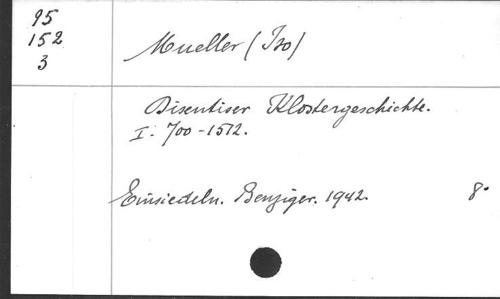 95
152
3
Mueller (Iso)
Disentiser Klostergeschichte.
I: 700-1512.
Einsiedeln. Benziger. 1942. 8°